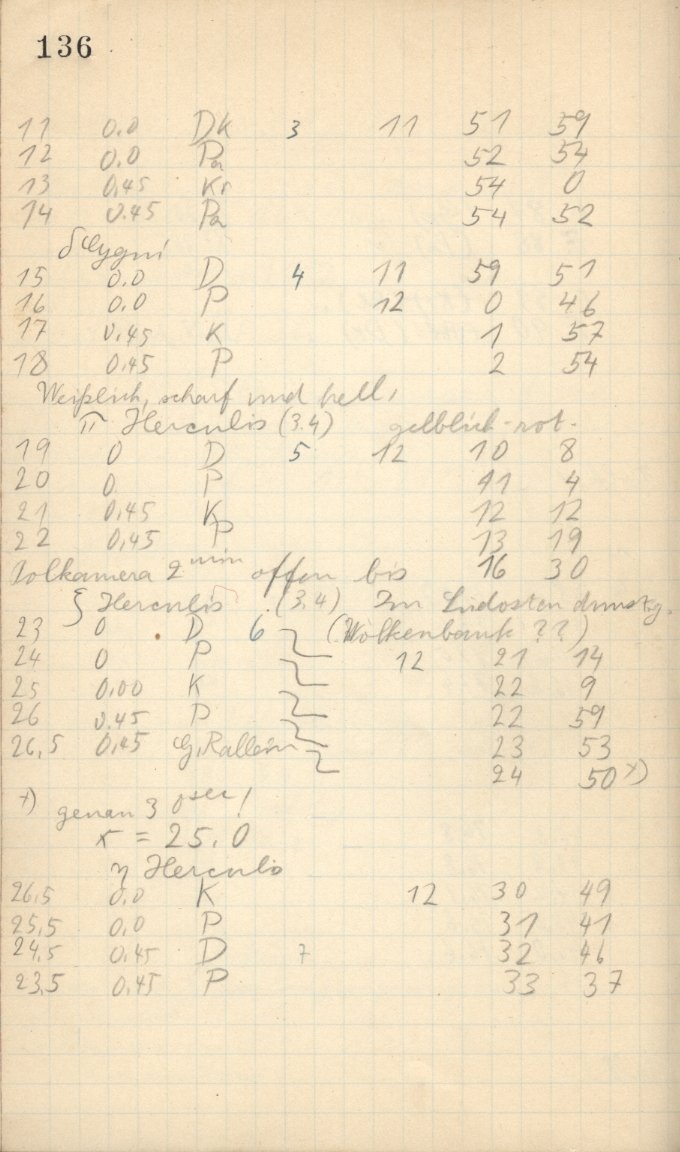 136
11 0.0 Dk 3 11 51 59
12 0.0 Pa 52 54
13 0,45 Kr 54 0
14 0.45 Pa 54 52
δ Cygni
15 0.0 D 4 11 59 51
16 0.0 P 12 0 46
17 0,45 K 1 57
18 0,45 P 2 54
Weißlich, scharf und hell,
π Herculis (3.4) gelblich-rot.
19 0 D 5 12 10 8
20 0 P 11 4
21 0,45 K 12 12
22 0,45 P 13 19
2 min offen bis 16 30
ξ Herculis (3.4) Im Südosten dunstg.
23 0 D 6 (Wolkenbank ??)
24 0 P 12 21 14
25 0,00 K 22 9
26 0.45 P 22 59
26,5 0,45 23 53
24 50 x)
x) genau 30 sec!
x = 25.0
η Herculis
26,5 0,0 K 12 30 49
25,5 0,0 P 31 41
24,5 0,45 D 7 32 46
23,5 0,45 P 33 37